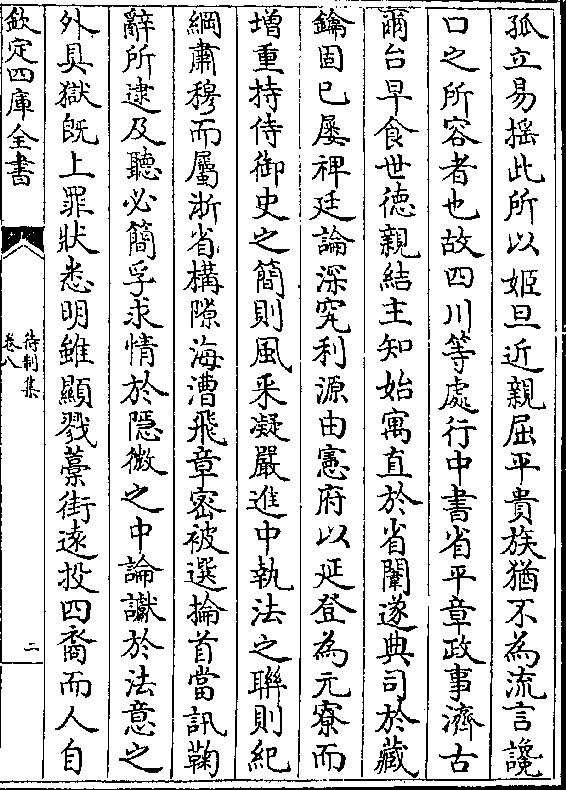 孤立易搖此所以姬旦近親屈平貴族猶不為流言讒
口之所容者也故四川等處行中書省平章政事濟古
爾台早食世徳親結主知始寓直於省闈遂典司於藏
鑰固已屡裨廷論深究利源由憲府以延登為元寮而
增重持侍御史之簡則風采凝嚴進中執法之聯則紀
綱肅穆而屬浙省構隙海漕飛章宻被選掄首當訊鞠
辭所逮及聽必簡孚求情於隠微之中論讞於法意之
外具獄既上罪狀悉明雖顯戮藁街逺投四裔而人自
欽定四庫全書
待制集
卷八
二